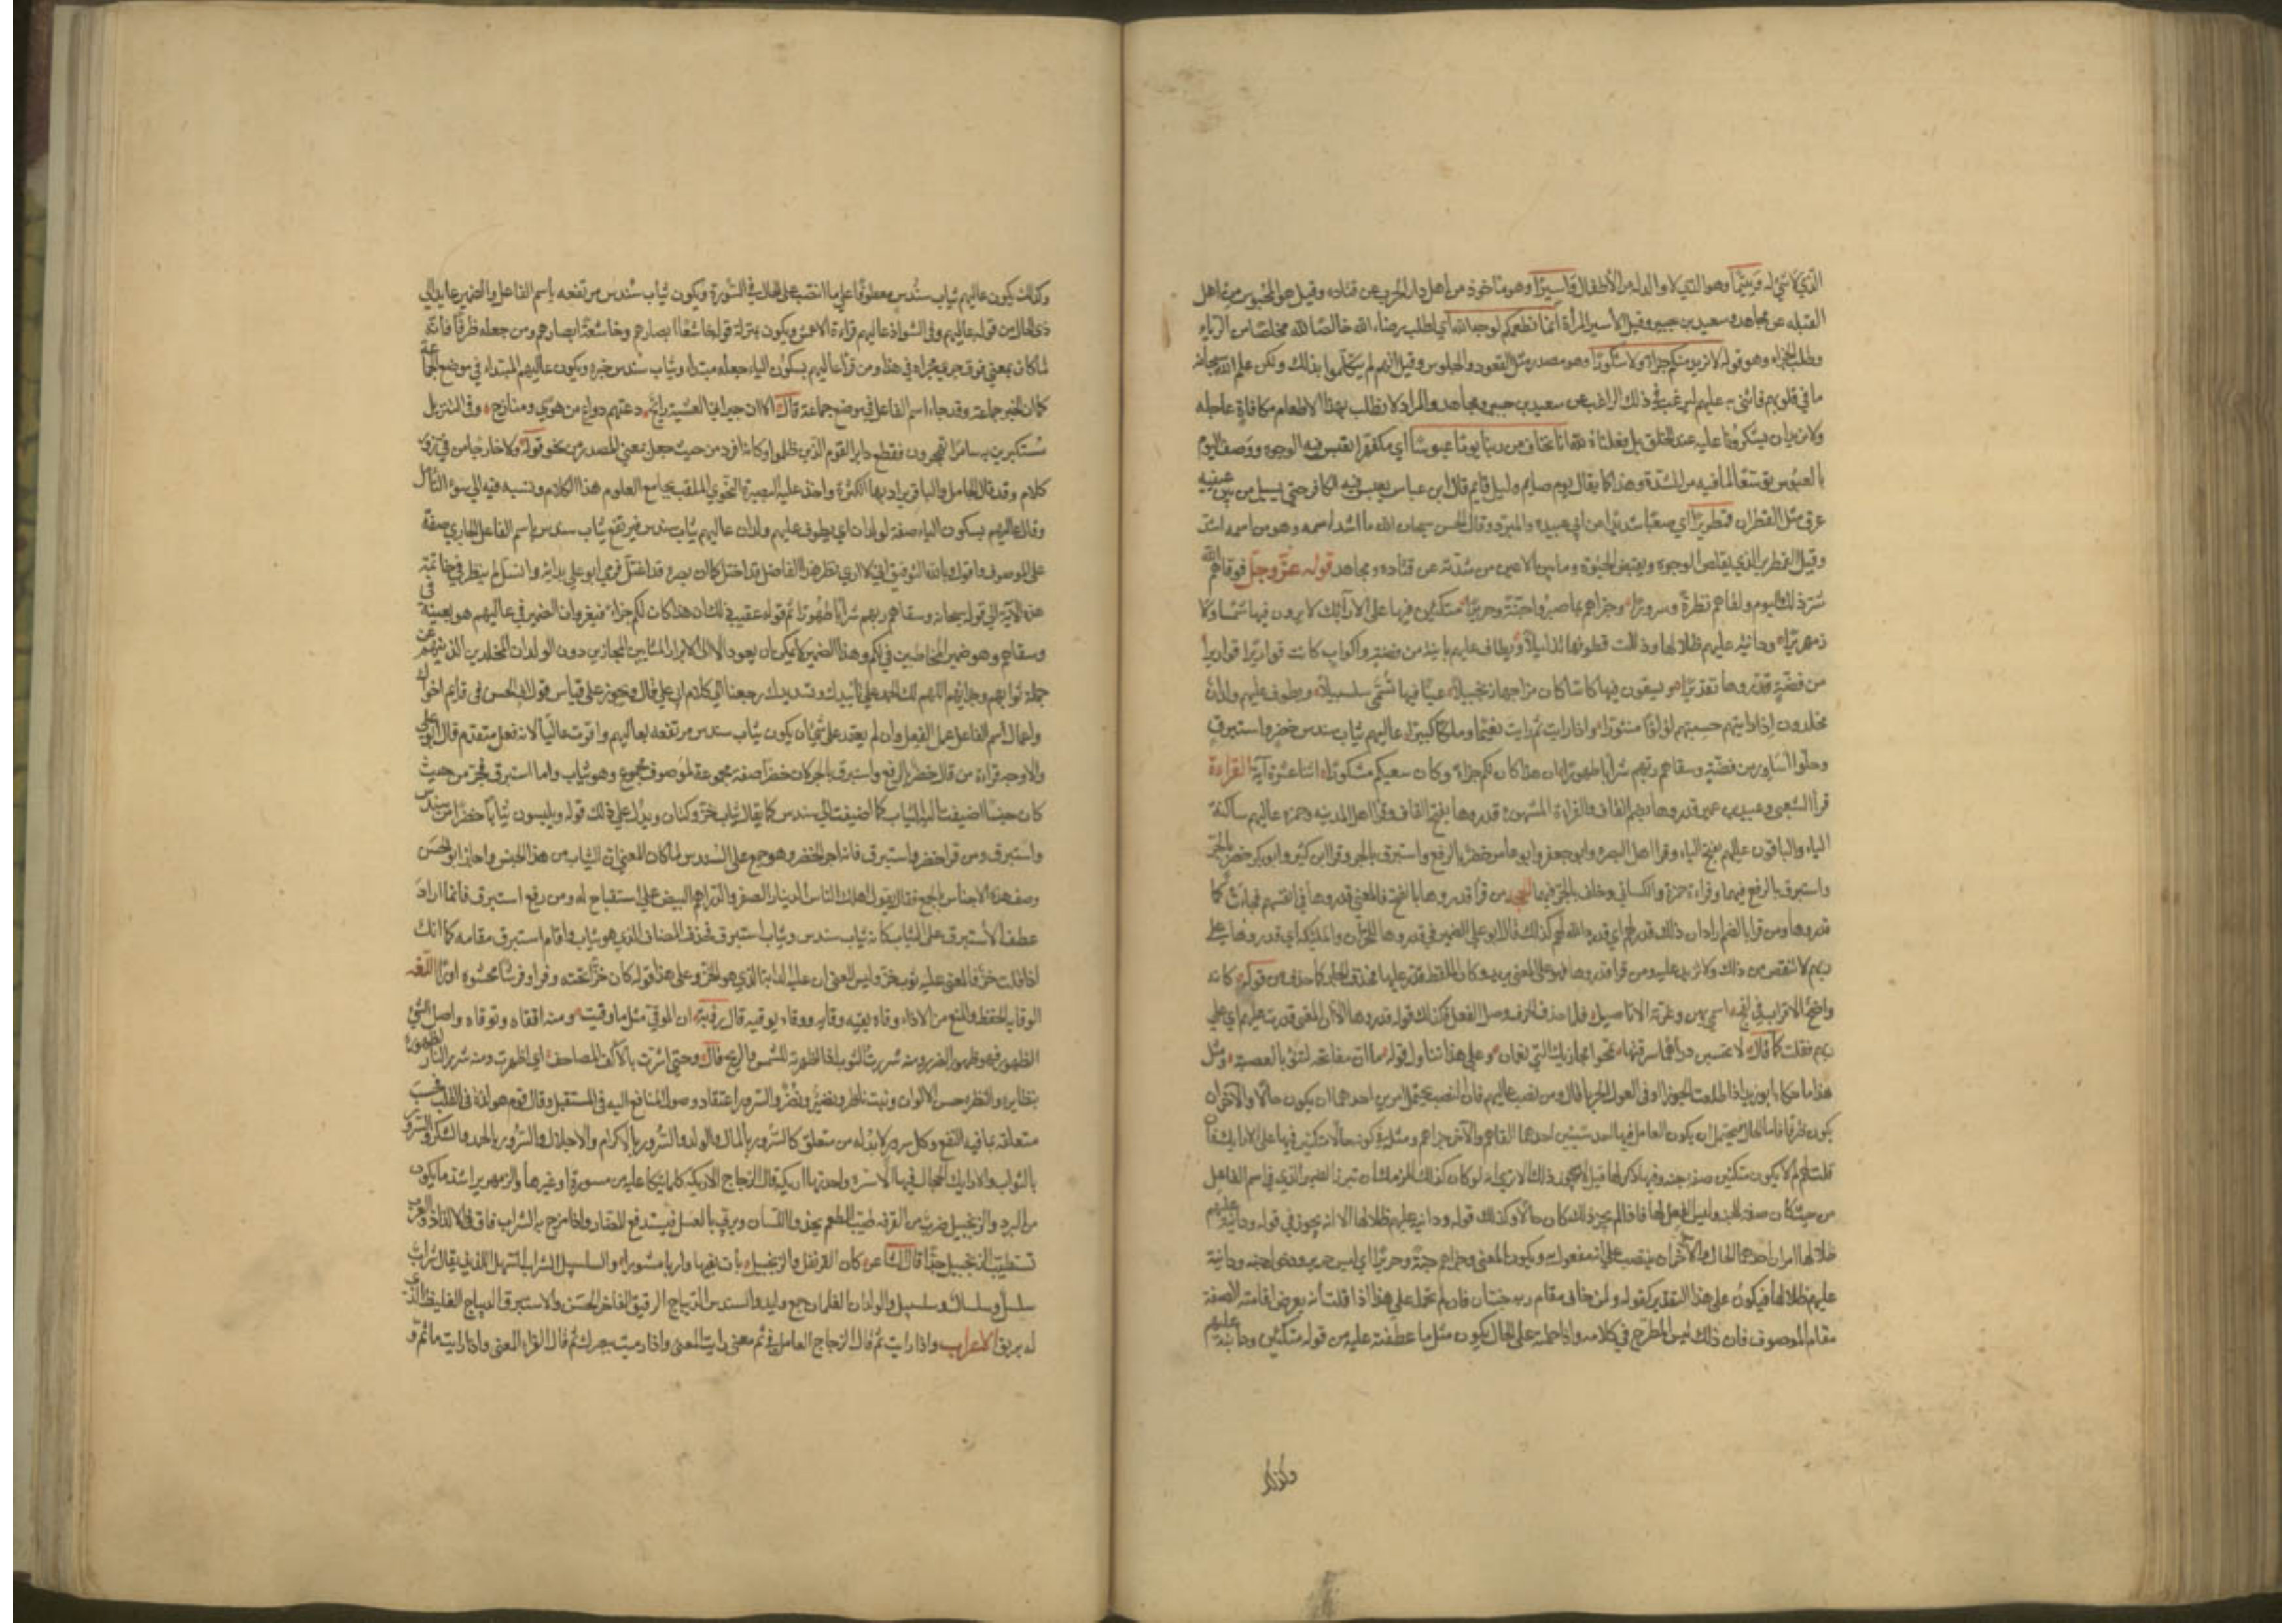 الذي لا شيء له ويتيما وهو الذي لا والد له من الأطفال وأسيرا وهو مأخوذ من أهل دار الحرب عن قتاده وقيل هو المحبوس من أهل
القبله عن مجاهد وسعيد بن جبير وقيل الأسير المرأة انما نطعمكم لوجه الله أي لطلب رضاء الله خالصا لله مخلصا من الرياء
وطلب الجزاء وهو قوله لا نريد منكم جزاء ولا شكورا وهو مصدر مثل القعود والجلوس وقيل انهم لم يتكلموا بذلك ولكن علم الله سبحانه
ما في قلوبهم فاثنى به عليهم ليرغب في ذلك الراغب عن سعيد بن جبير ومجاهد والمراد لا نطلب بهذا الاطعام مكافاة عاجله
ولا نريد ان يشكرونا عليه عند الخلق بل فعلناه لله انا نخاف من ربنا يوما عبوسا أي مكفهرا تعبس فيه الوجوه ووصف اليوم
بالعبوس توسعا لما فيه من الشدة وهذا كما يقال يوم صايم وليل قايم قال ابن عباس يعبس فيه الكافر حتى يسيل من بين عينيه
عرق مثل القطران قمطريرا أي صعبا شديدا عن ابي عبيده والمبرد وقال الحسن سبحان الله ما اشد اسمه وهو من اسمه اشد
وقيل القمطرير الذي يقلص الوجوه ويقبض الجبوه وما بين الاعين من شدته عن قتاده ومجاهد قوله عز وجل فوقاهم الله
شر ذلك اليوم ولقاهم نضرة وسرورا وجزاهم بما صبروا جنة وحريرا متكئين فيها على الارائك لا يرون فيها شمسا ولا
زمهريرا ودانية عليهم ظلالها وذللت قطوفها تذليلا ويطاف عليهم بانية من فضة واكواب كانت قواريرا قواريرا
من فضة قدروها تقديرا ويسقون فيها كاسا كان مزاجها زنجبيلا عينا فيها تسمى سلسبيلا ويطوف عليهم ولدان
مخلدون اذا رايتهم حسبتهم لؤلؤا منثورا واذا رايت ثم رايت نعيما وملكا كبيرا عاليهم ثياب سندس خضر واستبرق
وحلوا اساور من فضة وسقاهم ربهم شرابا طهورا ان هذا كان لكم جزاء وكان سعيكم مشكورا اثنا عشرة آية القراءة
قرا الشعبي وعبيد بن عمير قدروها بضم القاف والقراءة المشهورة قدروها بفتح القاف وقرا اهل المدينه وحمزه عاليهم ساكنة
الياء والباقون عاليهم بفتح الياء وقرا اهل البصره وابو جعفر وابن عامر خضر بالرفع واستبرق بالجر وقرا ابن كثير وابو بكر خضر بالجر
واستبرق بالرفع فيهما وقراءة حمزة والكسائي وخلف بالجر فيهما الحجه من قرا قدروها بالفتح فالمعنى قدروها في انفسهم فجاءت كما
قدروها ومن قرا بالضم اراد ان ذلك قدر لهم اي قدره الله لهم كذلك قال ابو علي الضمير في قدروها للخزان والملائكة أي قدروها على
ريهم لا تنقص من ذلك ولا تزيد عليه ومن قرا قدروها فهو على المعنى يريد وكان اللفظ قدر عليها فحذف الجار كما حذف من قوله كانه
واضح الاقراب في لقح اسمى بهن وعزته الاناصيل فلما حذف الحرف وصل الفعل فكذلك قوله قدروها الا ان المعنى قدرت عليهم اي على
ريهم فقلت كما قال لا تحسبن دراهما سرقتها تمحو مخازيك التي بعمان وعلى هذا نتاول قوله ما ان مفاتحه لتنوء بالعصبة ومثل
هذا ما حكاه ابو زيد اذا طلعت الجوزا اوفى العود الحربا قال ومن نصب عاليهم فان النصب يحتمل امرين احدهما ان يكون حالا والآخر ان
يكون ظرفا فاما الحال فيحتمل ان يكون العامل فيها احد شيئين احدهما لقاهم والآخر جزاهم ومثله في كونه حالا متكئين فيها على الارايك فان
قلت لم لا يكون متكئين صفة جنة وفيها ذكر لها قيل لا يجوز ذلك الا ترى انه لو كان كذلك للزمك ان تبرز الضمير الذي في اسم الفاعل
من حيث كان صفة للجنه وليس الفعل لها فاذا لم يجز ذلك كان حالا وكذلك قوله ودانية عليهم ظلالها الا انه يجوز في قوله ودانية عليهم
ظلالها امران احدهما الحال والآخر ان ينتصب على انه مفعول به ويكون المعنى وجزاهم جنة وحريرا اي لبس حرير ودخول جنه ودانية
عليهم ظلالها فيكون على هذا التقدير كقوله ولمن خاف مقام ربه جنتان فان لم تحمله على هذا اذا قلت أنه يعرض اقامة الصفة
مقام الموصوف فان ذلك ليس بالمطرح في كلامه واذا حملته على الحال يكون مثل ما عطفته عليه من قوله متكئين ودانية عليهم
وكذلك
وكذلك يكون عاليهم ثياب سندس معطوفا على ما انتصب على الحال في السورة ويكون ثياب سندس مرتفعه باسم الفاعل والضمير عايد الى
ذي الحال من قوله عاليهم وفي الشواذ عاليهم قراءة الاعمش ويكون بمنزلة قوله خاشعا ابصارهم وخاشعة ابصارهم ومن جعله ظرفا فانه
لما كان بمعنى فوق جرى مجراه في هذا ومن قرا عاليهم بسكون الياء جعله مبتداء وثياب سندس خبره ويكون عاليهم المبتداء في موضع الجماعة
كما ان الخبر جماعة وقد جاء اسم الفاعل في موضع جماعة قال الا ان جيراني العشية رائح دعتهم دواع من هوى ومنازح وفي التنزيل
مستكبرين به سامرا تهجرون فقطع دابر القوم الذين ظلموا وكانه افرد من حيث جعل بمعنى المصدر من نحو قوله ولا خارجا من في زور
كلام وقد قال الجامل والباقر يراد بها الكثرة واخذ عليه البصير النحوي الملقب بجامع العلوم هذا الكلام ونسبه فيه الى سوء التامل
وقال عاليهم بسكون الياء صفة لولدان اي يطوف عليهم ولدان عاليهم ثياب سندس فيرتفع ثياب سندس باسم الفاعل الجاري صفة
على الموصوف واقول وبالله التوفيق
هذه الآية الى قوله سبحانه وسقاهم ربهم شرابا طهورا ثم قوله عقيب ذلك ان هذا كان لكم جزاء فيعرف ان الضمير في عاليهم هو بعينه في
وسقاهم وهو ضمير المخاطبين في لكم وهذا الضمير لا يمكن ان يعود الا الى الابرار المثابين المجازين دون الولدان المخلدين الذين هم من
جملة ثوابهم وجزائهم اللهم لك الحمد على تاييدك وتسديدك رجعنا الى كلام ابي علي قال ويجوز على قياس قول ابي الحسن في قايم اخواك
واعمال اسم الفاعل عمل الفعل وان لم يعتمد على شي ان يكون ثياب سندس مرتفعه بعاليهم وافردت عاليا لانه فعل متقدم قال ابو علي
والاوجه قراءة من قال خضر بالرفع واستبرق بالجر لان خضرا صفة مجموعة لموصوف مجموع وهو ثياب واما استبرق فجر من حيث
كان جنسا اضيفت اليه الثياب كما اضيفت الى سندس كما يقال ثياب خز وكتان ويدل على ذلك قوله ويلبسون ثيابا خضرا من سندس
واستبرق ومن قرا خضر واستبرق فانه اجرا الخضر وهو جمع على السندس لما كان المعنى ان الثياب من هذا الجنس واجاز ابو الحسن
وصف هذه الاجناس بالجمع فقال يقول اهلك الناس الدينار الصفر والدراهم البيض على استقباح له ومن رفع استبرق فانما اراد
عطف الاستبرق على الثياب كانه ثياب سندس وثياب استبرق فحذف المضاف الذي هو ثياب واقام استبرق مقامه كما انك
اذا قلت على خز فالمعنى عليه ثوب خز وليس المعنى ان عليه الدابة الذي هو الخز وعلى هذا قوله كان خزا تحته وقزا وفرشا محشوة اوزا اللغه
الوقايه الحفظ والمنع من الاذاء وقاه يقيه وقايه ووقاه يوقيه قال رؤبة ان الموقى مثل ما وقيت ومنه اتقاه وتوقاه واصل الشر
الظهور فهو ظهور الضرر ومنه شررت الثوب اذا اظهرته للشمس والريح قال وحتى اشرت بالاكف المصاحف اي اظهرت ومنه شرر النار لظهوره
بتطايره والنضره حسن الالوان ونبت ناضر ونضير ونضر والسرور اعتقاد وصول المنافع اليه في المستقبل وقال قوم هو لذة في القلب فحسب
متعلقه بما فيه النفع وكل سرور لا بد له من متعلق كالسرور بالمال والولد والسرور بالاكرام والاجلال والسرور بالحمد والشكر والسرور
بالثواب والارايك الحجال فيها الاسره واحدتها اريكة قال الزجاج الاريكه كلما يتكا عليه من مسورة او غيرها والزمهرير اشد ما يكون
من البرد والزنجبيل ضرب من القرفه طيب الطعم يحذو اللسان ويربى بالعسل فيستدفع به المضار واذا مزج به الشراب فاق في الالذاذ والعرب
تستطيب الزنجبيل جدا قال الشاعر كان القرنفل والزنجبيل باتا بفيها واريا مشورا والسلسبيل الشراب السهل اللذيذ يقال شراب
سلسل وسلسال وسلسبيل والولدان الغلمان جمع وليد والسندس الديباج الرقيق الفاخر الحسن والاستبرق الديباج الغليظ الذي
له بريق الاعراب واذا رايت ثم قال الزجاج العامل في ثم معنى رايت المعنى واذا رميت ببصرك ثم قال الفراء المعنى واذا رايت ما ثم و